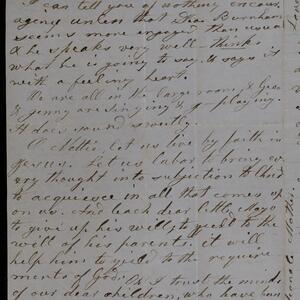 I can tell you of nothing encour
aging unless that Geo. Burnham
seems more engaged than usual
& he speaks very well - thinks
what he is going to say. & says it
with a feeling heart.
We are all in the large room, & Geo
& Jenny are singing & playing.
It does sound sweetly.
O, Nellie, let us live by faith in
Jesus. Let us labor to bring ev
ery thought into subjection to
to acquiesce in all that comes up
on us. And teach dear little Mayo
to give up his will, & yield to the
will of his parents. it will
help him to yield to the require
ments of God. Oh I trust the minds
of our dear children, who have